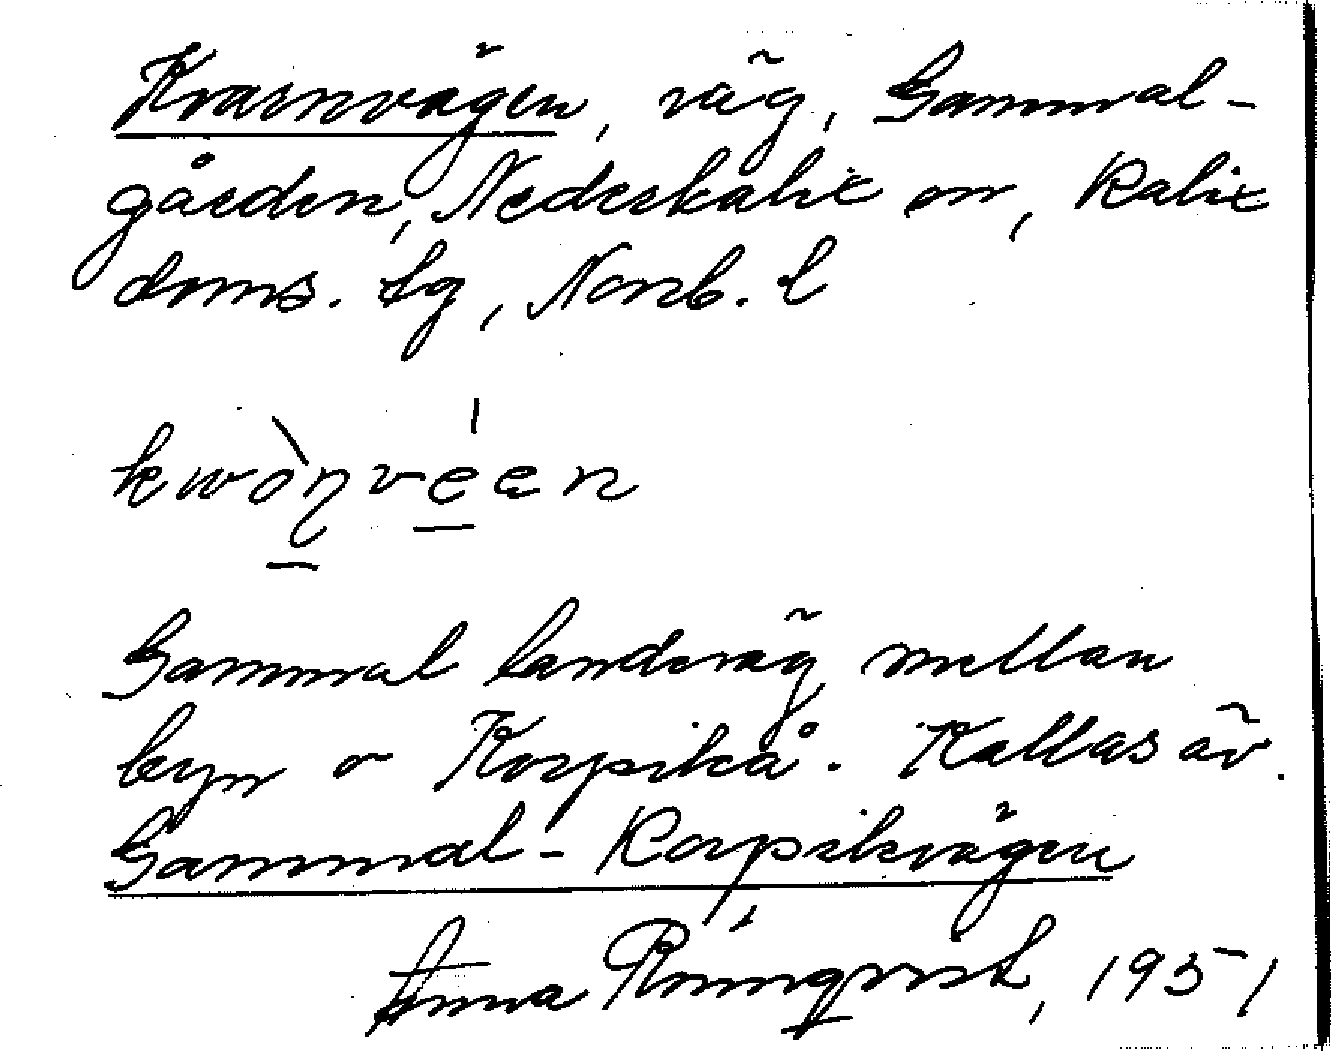 Kvarnvägen, väg, Gammal-
gården, Nederkalix sn, Kalix
doms. tg, Norrb. l
kwònvéen
Gammal landsväg mellan
byn o Korpikå. Kallas äv.
Gammal-Korpikvägen
Anna Rönnqvist, 1951